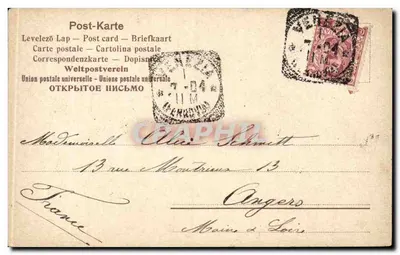 Post-Karte
Levelező Lap — Post card — Briefkaart
Carte postale — Cartolina postale
Correspondenzkarte — Dopisn
Weltpostverein
Union postale universelle - Unione postale universale
ОТКРЫТОЕ ПИСЬМО
VENEZIA
7-04
11 M
(FERROVIA)
VENEZIA
7-04
11 M
Mademoiselle Alice Schmitt
13 rue Montrieux 13
Angers
Maine & Loire
France